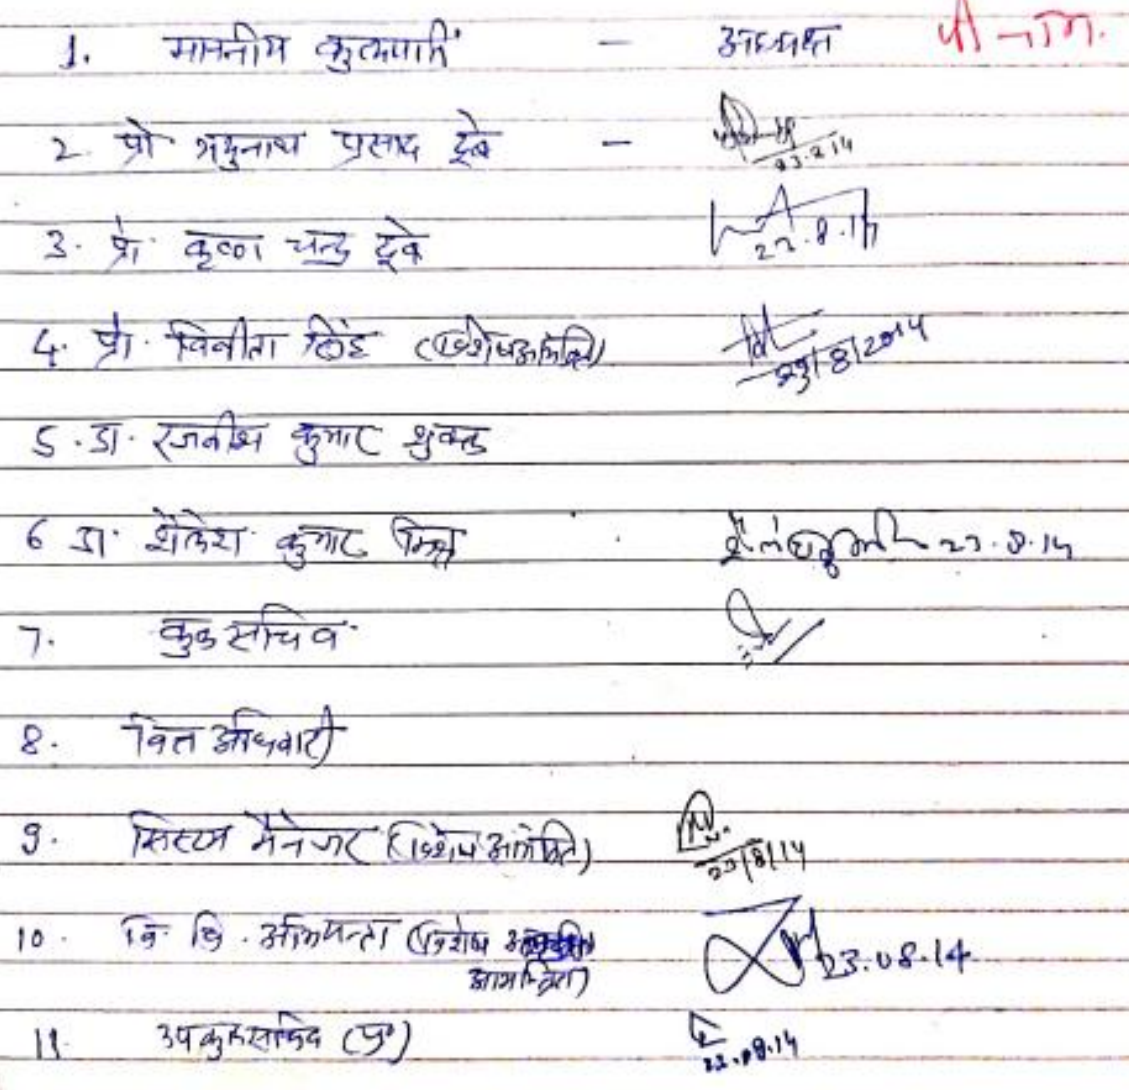 1. माननीय कुलपति - अध्यक्ष
2. प्रो यदुनाथ प्रसाद दूबे - 23.8.14
3. प्रो. कृष्ण चन्द्र दूबे 23.8.14
4. प्रो. विनीता सिंह (विशेष आमंत्रित) 23/8/2014
5. डा. रजनीश कुमार शुक्ल
6 डा. शैलेश कुमार मिश्र 23.8.14
7. कुलसचिव
8. वित्त अधिकारी
9. सिस्टम मैनेजर (विशेष आमंत्रित) 23/8/14
10. वि. वि. अभियन्ता (विशेष
आमन्त्रित) 23.08.14
11. उपकुलसचिव (प्र०) 23.08.14